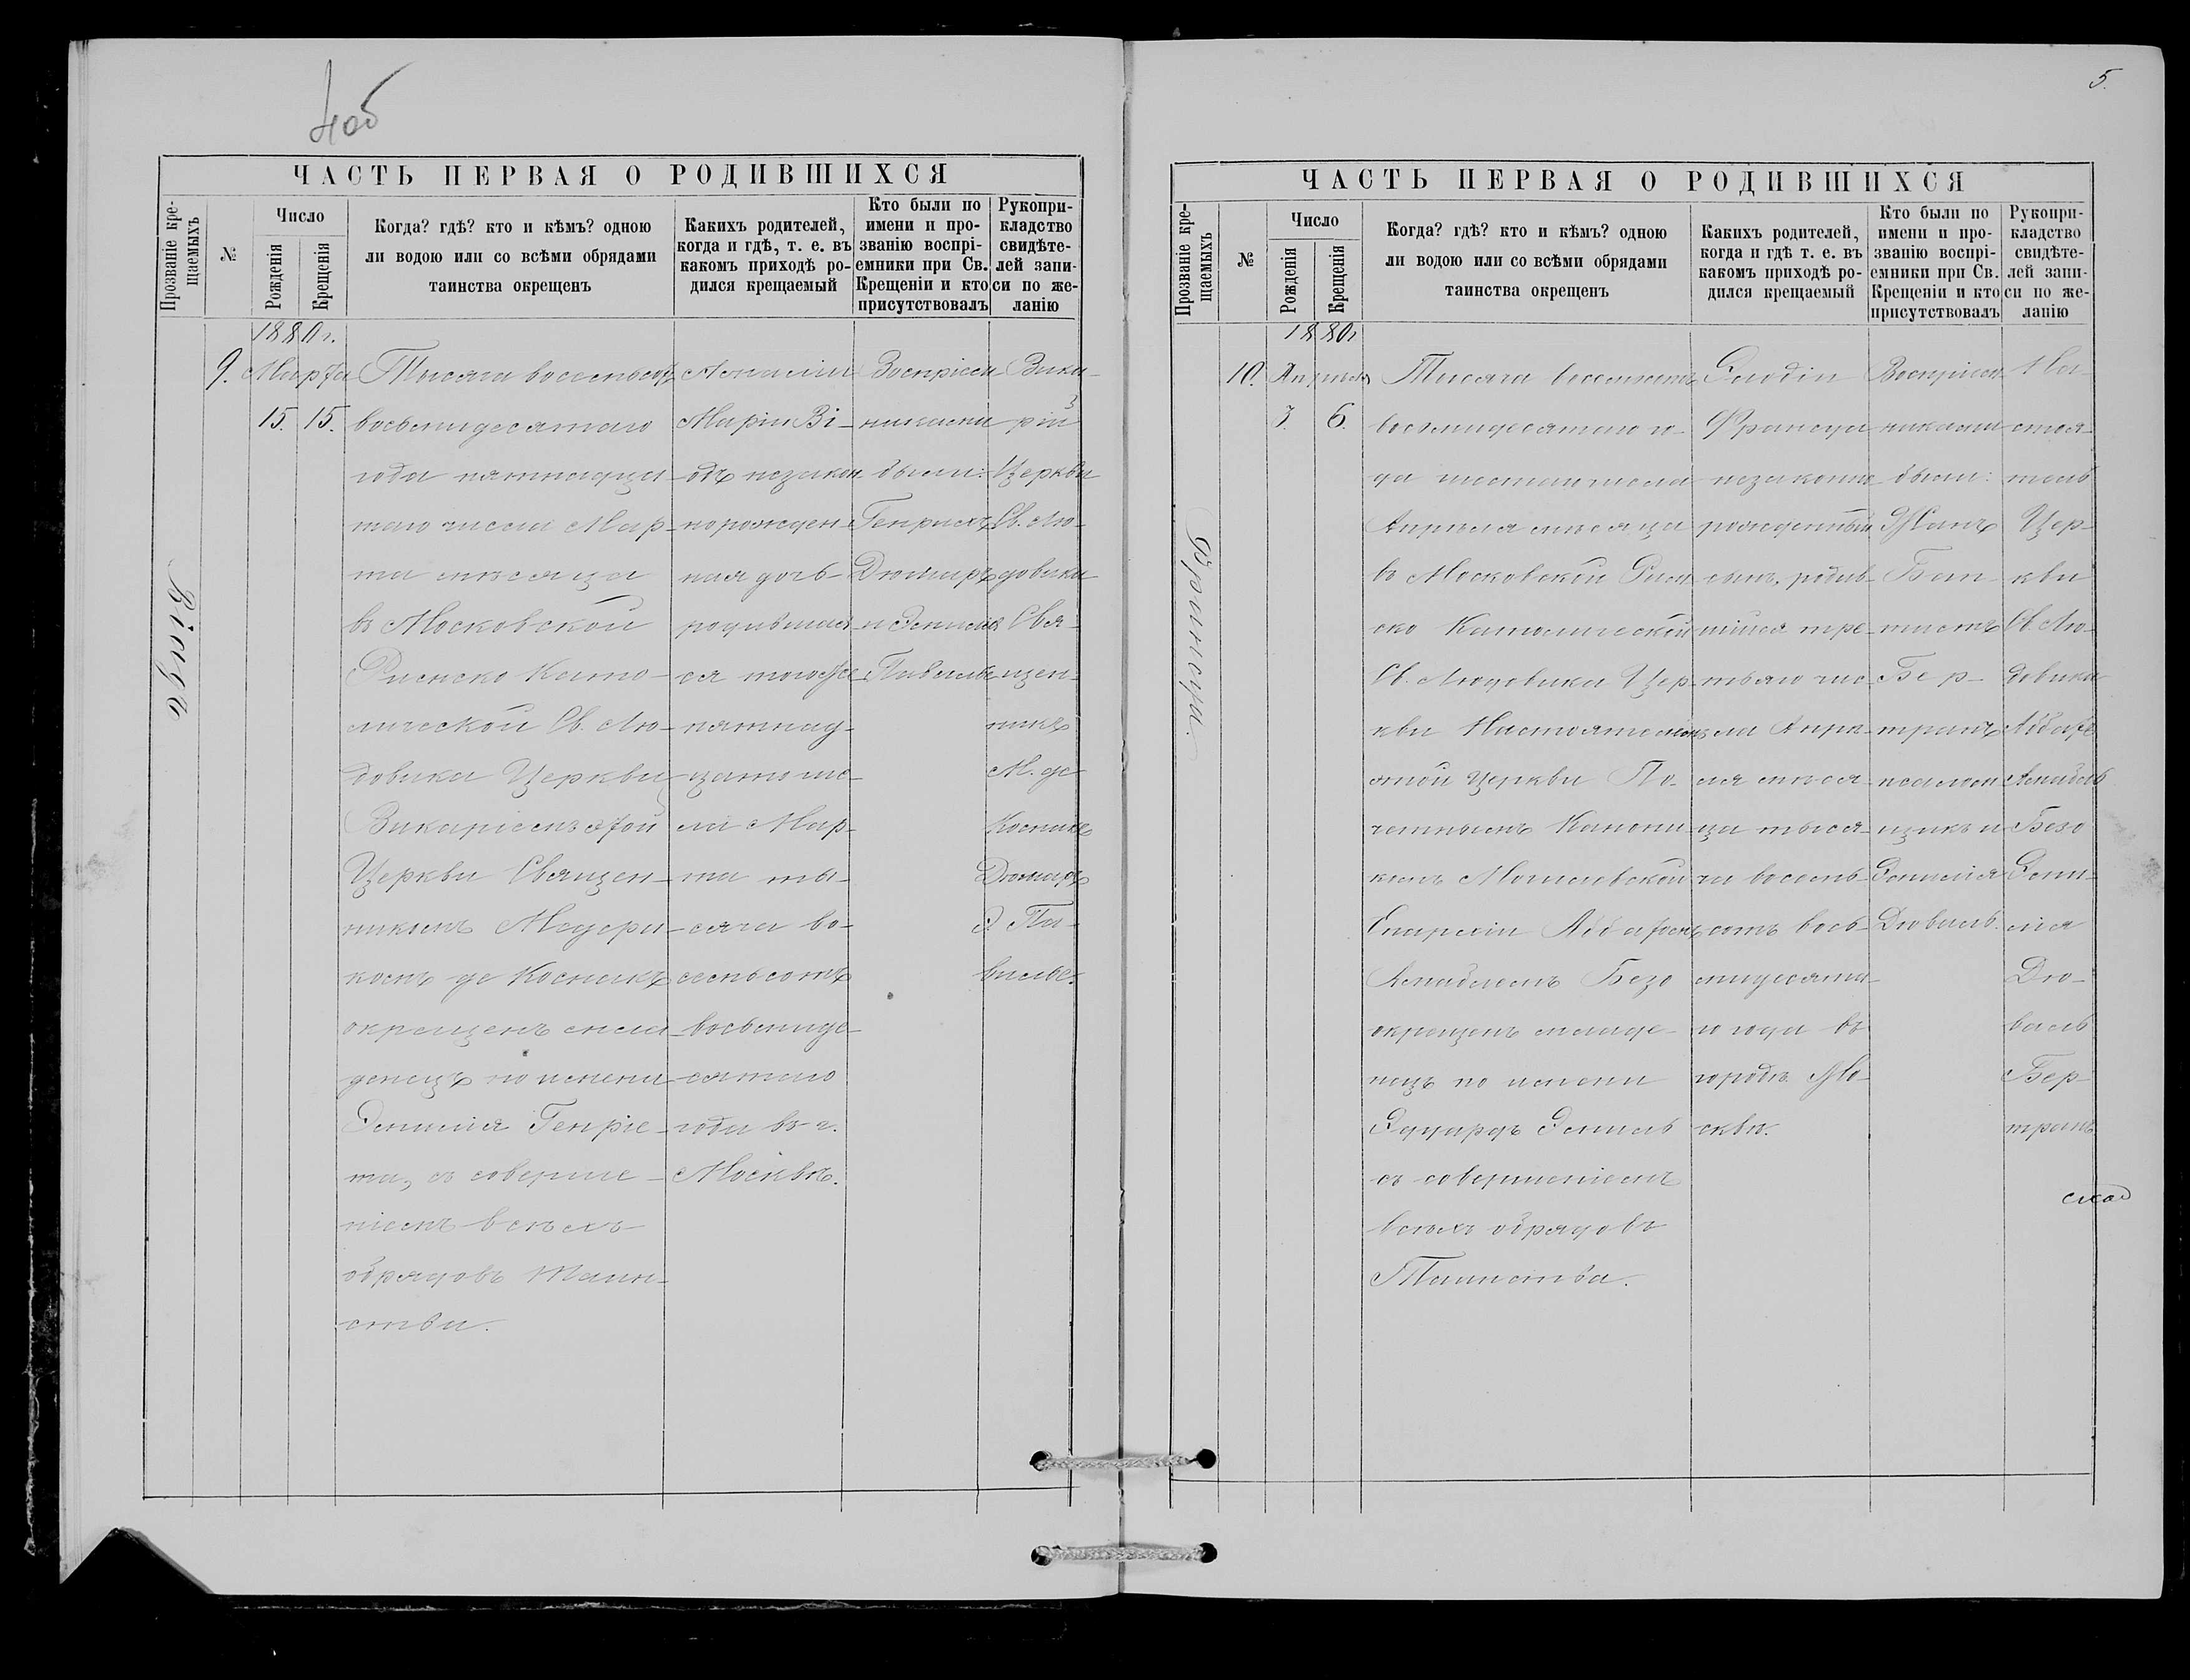 4об
ЧАСТЬ ПЕРВАЯ О РОДИВШИХСЯ
Прозваніе кре-
щаемыхъ
№
Число
Рожденія
Крещенія
Когда? гдѣ? кто и кѣмъ? одною
ли водою или со всѣми обрядами
таинства окрещенъ
Какихъ родителей,
когда и гдѣ, т. е. въ
какомъ приходѣ ро-
дился крещаемый
Кто были по
имени и про-
званію воспрі-
емники при Св.
Крещеніи и кто
присутствовалъ
Рукопри-
кладство
свидѣте-
лей запи-
си по же-
ланію
1880 г.
9.
Марта
15. 15.
Тысяча восемьсотъ
восьмидесятаго
года пятнадца-
таго числа Мар-
та мѣсяца
въ Московской
Римско Като-
лической Св. Лю-
довика Церкви
Викаріемъ этой
Церкви Священ-
никомъ Медери-
комъ де Коснакъ
окрещенъ мла-
денецъ по имени
Эмилія Генріе-
та, съ соверше-
ніемъ всѣхъ
обрядовъ Таин-
ства.
Маріи Ві-
одъ незакон-
норожден-
ная дочь
родивша-
яся тогоже
пятнад-
цатого чис-
ла Мар-
та ты-
сяча во-
семьсотъ
восьмиде-
сятаго
года въ г.
Москвѣ.
Воспріем-
никами
были:
Генрихъ
Дюмаръ
и Эмилія
Павилье
Вика-
рій
Церкви
Св. Лю-
довика
Свя-
щен-
никъ
М. де
Коснакъ
Дюмаръ
Э. Па-
вилье.
5.
ЧАСТЬ ПЕРВАЯ О РОДИВШИХСЯ
Прозваніе кре-
щаемыхъ
№
Число
Рожденія
Крещенія
Когда? гдѣ? кто и кѣмъ? одною
ли водою или со всѣми обрядами
таинства окрещенъ
Какихъ родителей,
когда и гдѣ т. е. въ
какомъ приходѣ ро-
дился крещаемый
Кто были по
имени и про-
званію воспрі-
емники при Св.
Крещеніи и кто
присутствовалъ
Рукопри-
кладство
свидѣте-
лей запи-
си по же-
ланію
Франсуа.
1880 г
10.
Апрѣля
3. 6.
Тысяча восемьсотъ
восьмидесятаго го-
да шестаго числа
Апрѣля мѣсяца
въ Московской Рим-
ско Католической
Св. Людовика Цер-
кви Настоятелемъ
этой Церкви По-
четнымъ Канони-
комъ Могилевской
Епархіи Аббатомъ
Амабломъ Безо
окрещенъ младе-
нецъ по имени
Эдуардъ Эмиль
съ совершеніемъ
всѣхъ обрядовъ
Таинства.
Франсуа
незаконно
рожденный
сынъ, родив-
шійся тре-
тьяго чис-
ла Апрѣ-
ля мѣся-
ца тыся-
ча восемь-
сотъ вось-
мидесята-
го года въ
городѣ Мо-
сквѣ.
Воспріем-
никами
были:
Жанъ
Бап-
тистъ
Бер-
транъ
псалом-
щикъ и
Эмилія
Дюваль.
На-
стоя-
тель
Цер-
кви
Св. Лю-
довика
Аббатъ
Амабль
Безо
Эми-
лія
Дю-
валь
Бер-
транъ